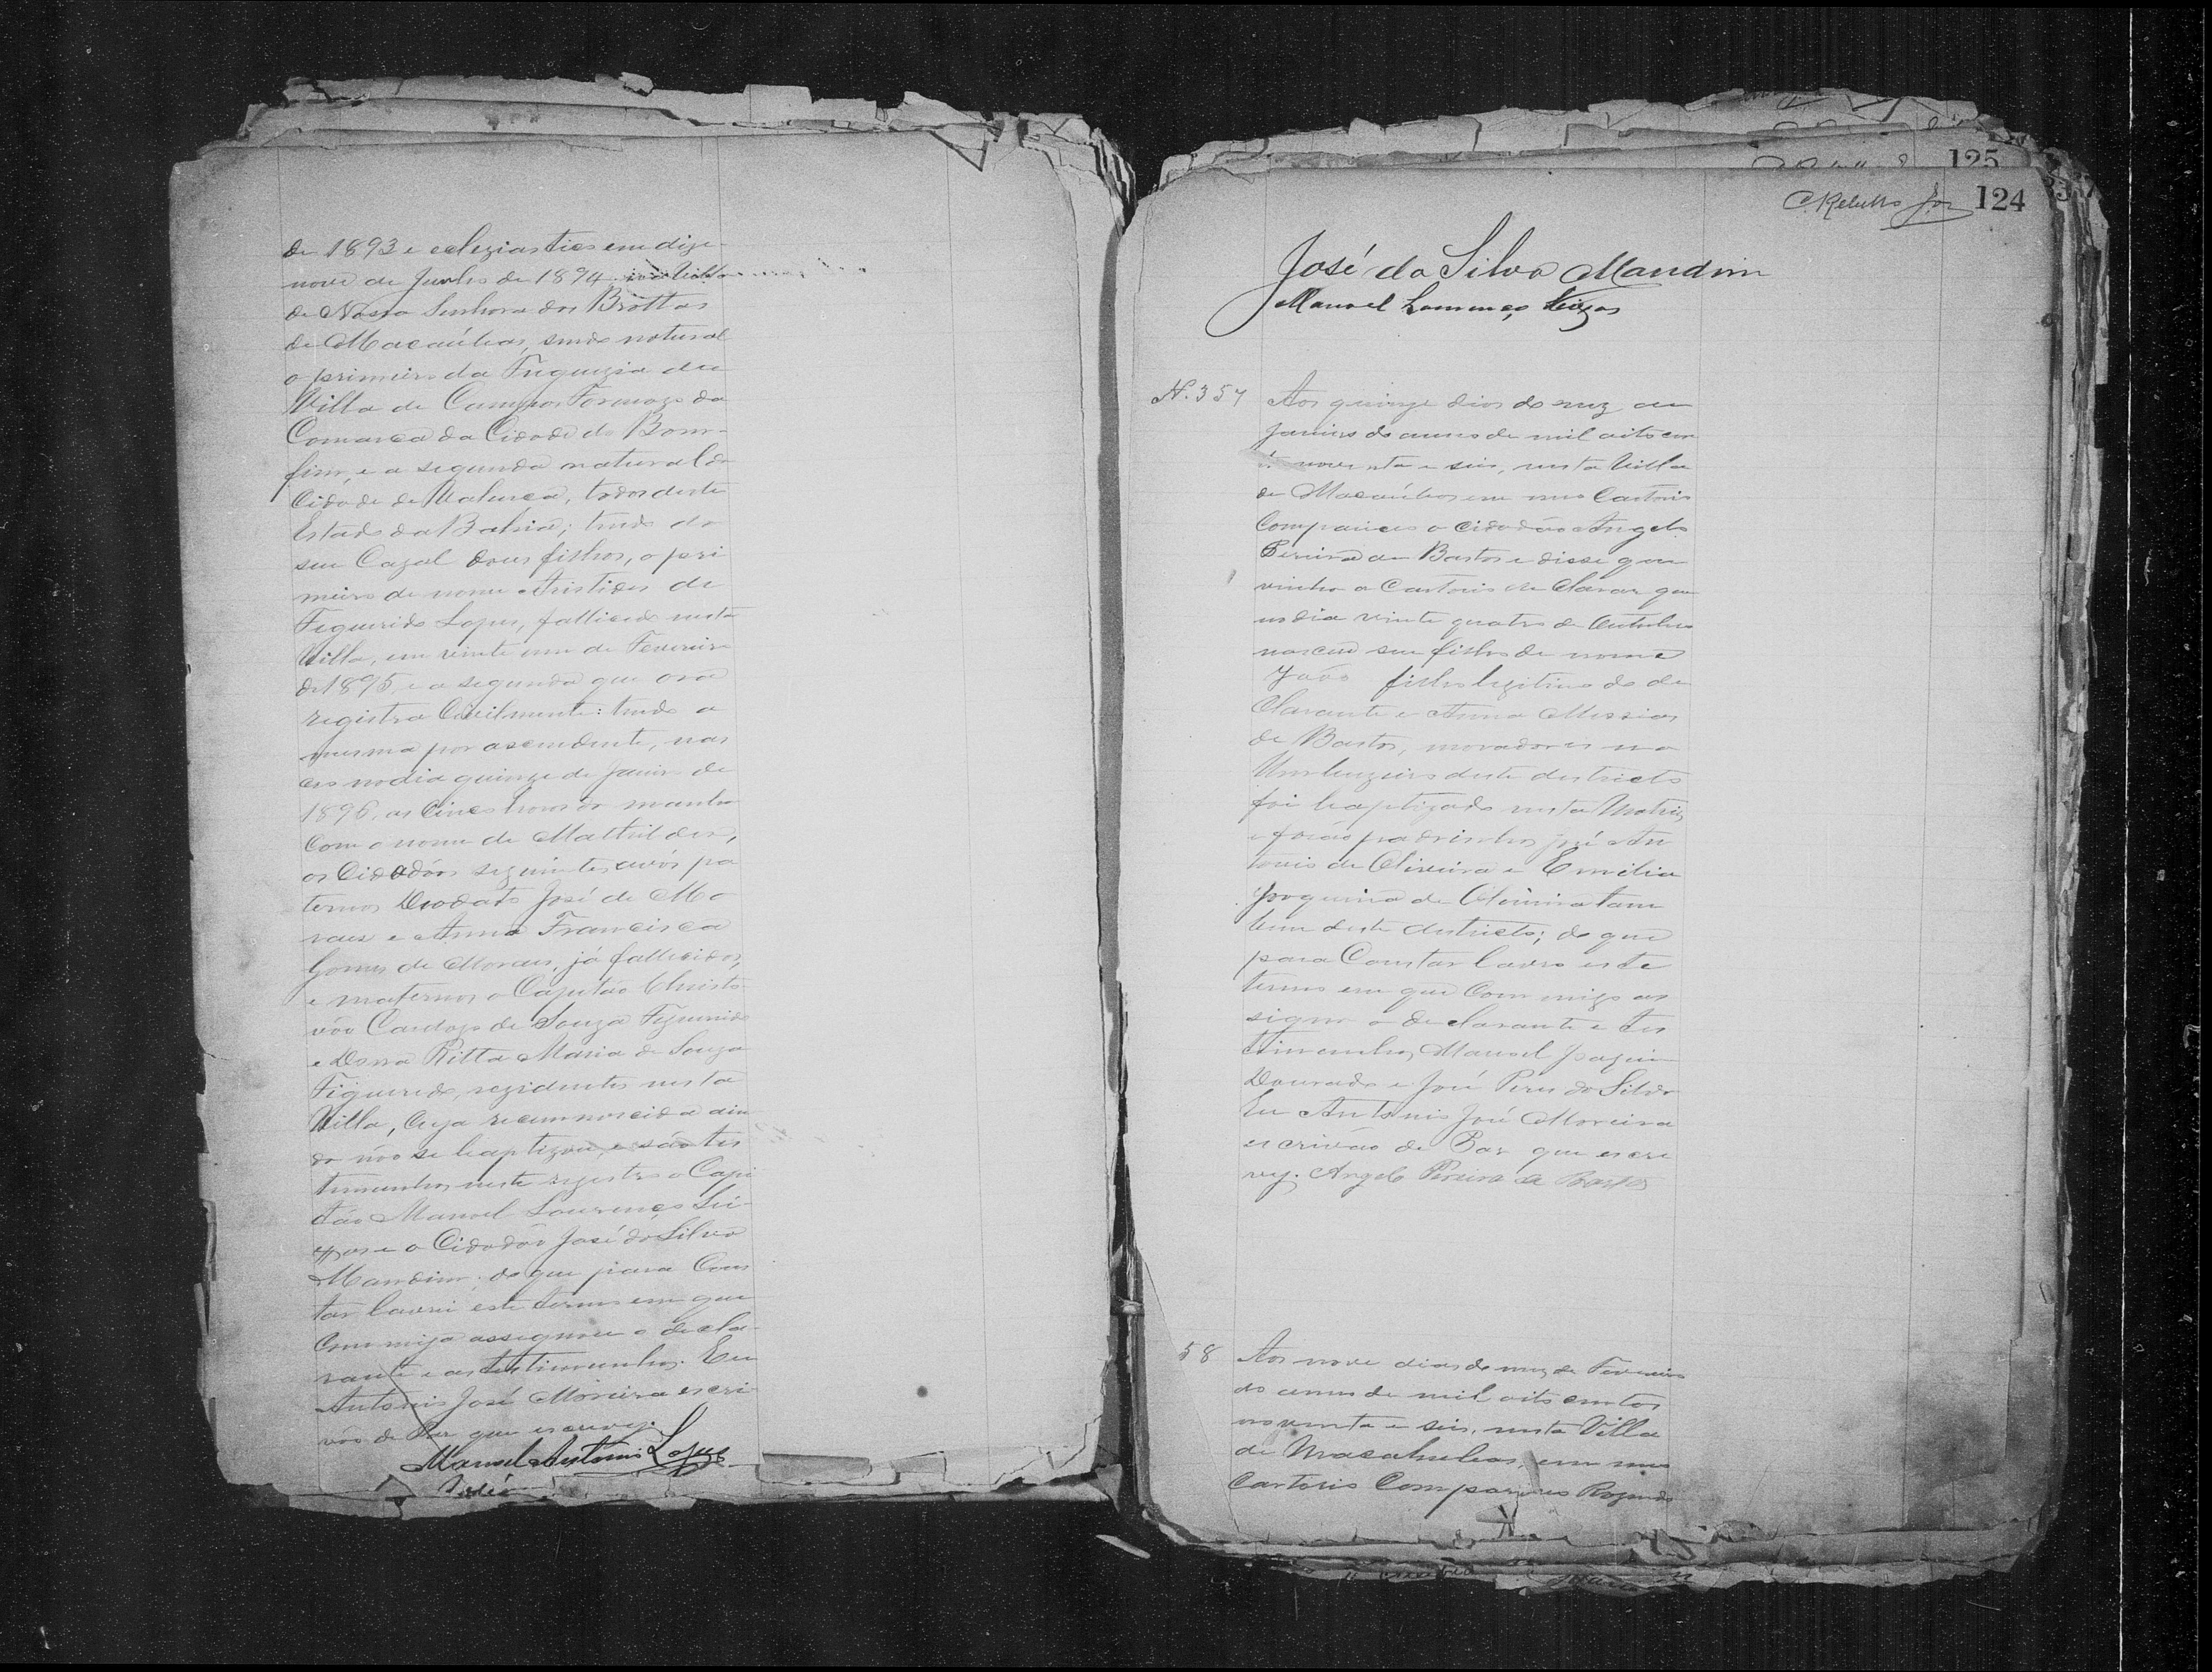 de 1893 e eclesiastico em deze-
nove de Junho de 1894
de Nossa Senhora dos Brottas
de Macaúbas, sendo natural
o primeiro da Freguezia da
Villa de Campos Formozo da
Comarca da Cidade do Bom-
fim, e a segunda natural da
Cidade de Valença, todos deste
Estado da Bahia; tendo do
seu Cazal dous filhos, o pri
meiro de nome Aristides de
Figueirido Lopes, fallicido nesta
Villa, em vinte um de Fevereiro
de 1895, e a segunda que ora
registra Civilmente: tendo a
mesma por ascendente, nas
ceo no dia quinze de Janeiro de
1896, as Cinco horas da manha
Com o nome de Mathildes,
os Cidadãos seguintes avós pa
ternos Deodato José de Mo
raes e Anna Francisca
Gomes de Moraes, já fallicidos,
e maternos o Capitão Christo
vão Cardozo de Souza Figueirido
e Dona Ritta Maria de Souza
Figueiredo, rezidentes nesta
Villa, Cuja recemnascida ain
da não se baptizou, e são tes
temunhas neste registro o Capi
tão Manoel Lourenço Sei-
xas e o Cidadão José da Silva
Mandim; do que para Cons
tar lavrei este termo em que
Commigo assignou o decla-
rante e as testimunhas. Eu
Antonio José Moreira escri
vão de Paz que escrevy.
Manoel Antonio Lopes
C. Rebello Jor 124
125
José da Silva Mandim
Manoel Lourenço Seixas
N. 357 Aos quinze dias do mez de
Janeiro do anno de mil oito cen
tos noventa e seis, nesta Villa
de Macaúbas em meu Cartorio
Compareceo o cidadão Angelo
Pereira de Bastos e disse que
vinha a Cartorio declarar que
no dia vinte quatro de Outubro
nasceu seu filho de nome
João filho legitimo do de
Clarante e Anna Messias
de Bastos, moradores no
Umbuzeiro deste districto
foi baptizado nesta Matriz
e forão padrinhos José An
tonio de Oliveira e Emilia
Joaquina de Oliveira tam
bem deste districto; do que
para Constar lavro este
termo em que Commigo as
signa o declarante e tes
timunhas Manoel Joaquim
Dourado e José Pires da Silva
Eu Antonio José Moreira
escrivão de Paz que escre
vy. Angelo Pereira de Bastos
58 Aos nove dias do mez de Fevereiro
do anno de mil oito centos
noventa e seis, nesta Villa
de Macahubas, em meu
Cartorio Compareceo Rozendo